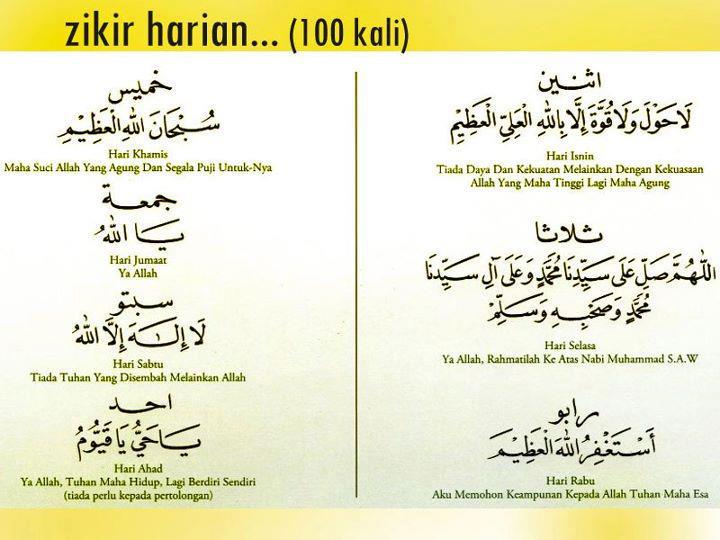 zikir harian... (100 kali)
خميس
سُبْحَانَ اللهِ الْعَظِيْمِ
Hari Khamis
Maha Suci Allah Yang Agung Dan Segala Puji Untuk-Nya
جمعة
يَا اللهُ
Hari Jumaat
Ya Allah
سبتو
لَا إِلٰهَ إِلَّا اللهُ
Hari Sabtu
Tiada Tuhan Yang Disembah Melainkan Allah
احد
يَا حَيُّ يَا قَيُّوْمُ
Hari Ahad
Ya Allah, Tuhan Maha Hidup, Lagi Berdiri Sendiri
(tiada perlu kepada pertolongan)
اثنين
لَا حَوْلَ وَلَا قُوَّةَ إِلَّا بِاللهِ الْعَلِيِّ الْعَظِيْمِ
Hari Isnin
Tiada Daya Dan Kekuatan Melainkan Dengan Kekuasaan
Allah Yang Maha Tinggi Lagi Maha Agung
ثلاثا
اللّٰهُمَّ صَلِّ عَلَى سَيِّدِنَا مُحَمَّدٍ وَعَلَى آلِ سَيِّدِنَا
مُحَمَّدٍ وَصَحْبِهِ وَسَلِّمْ
Hari Selasa
Ya Allah, Rahmatilah Ke Atas Nabi Muhammad S.A.W
رابو
أَسْتَغْفِرُ اللهَ الْعَظِيْمَ
Hari Rabu
Aku Memohon Keampunan Kepada Allah Tuhan Maha Esa